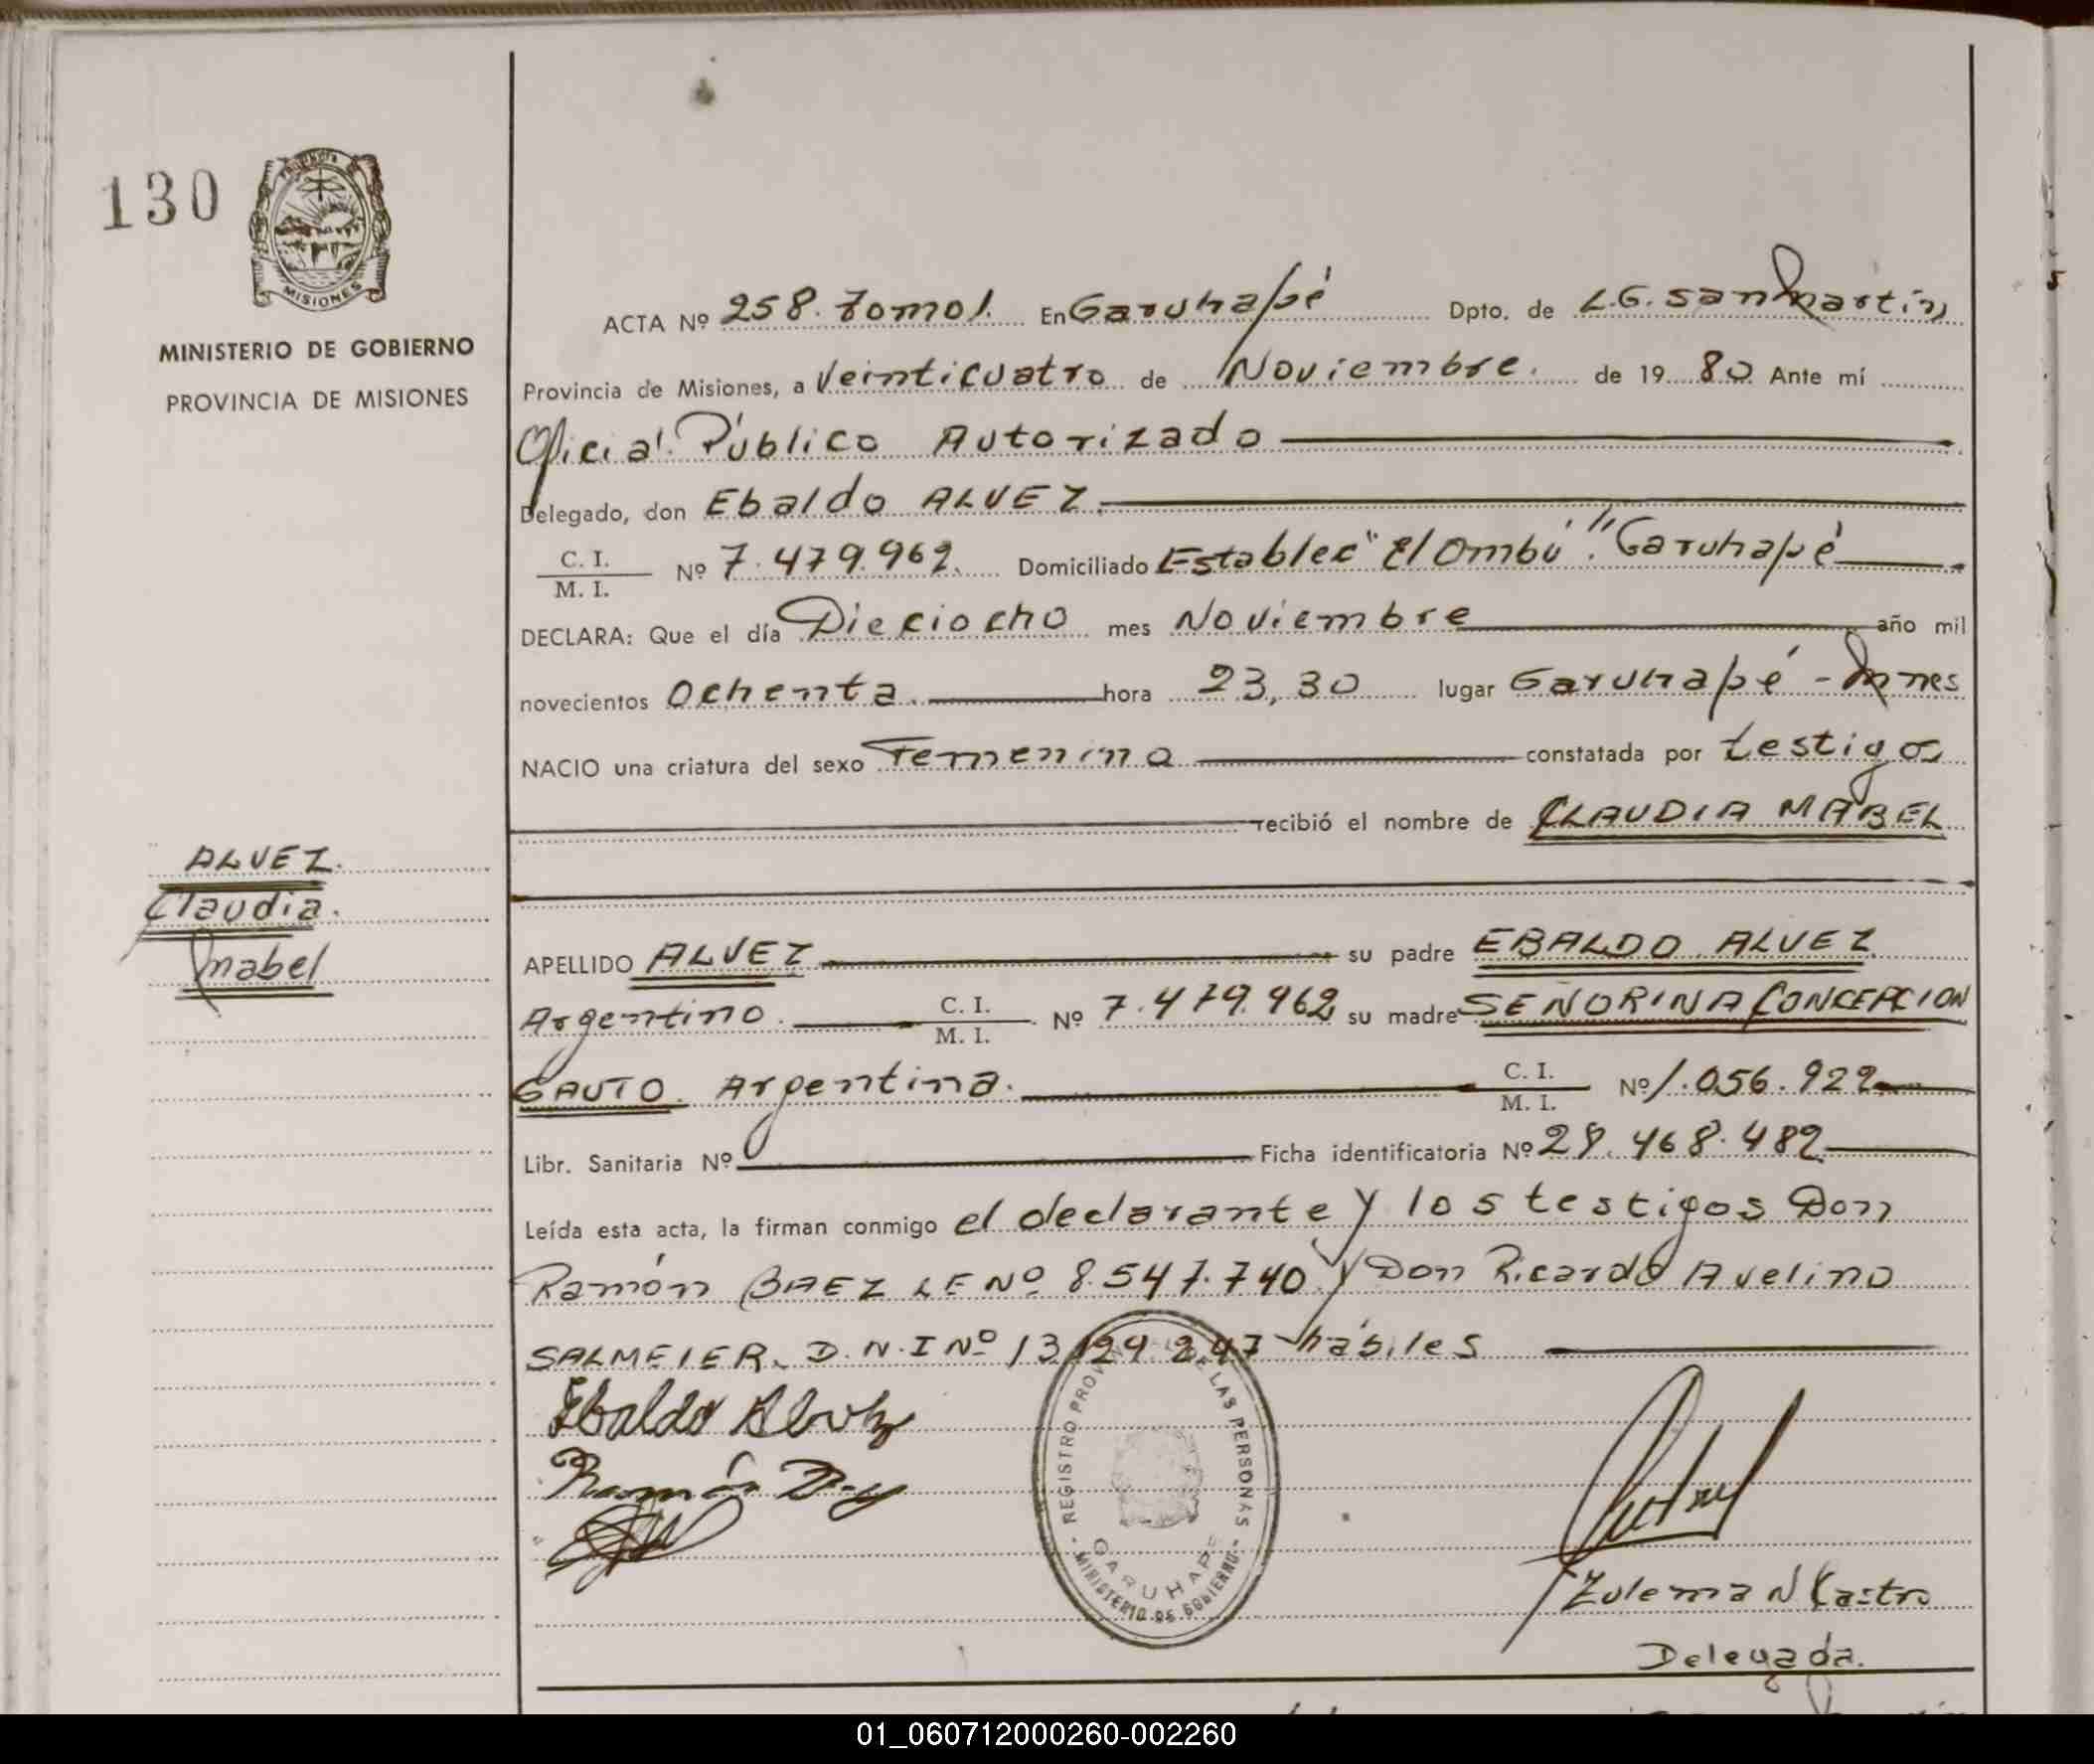 130
MISIONES
MINISTERIO DE GOBIERNO
PROVINCIA DE MISIONES
ACTA Nº 258. Tomo 1. En Garuhapé Dpto. de L.G. San Martín
Provincia de Misiones, a Veinticuatro de Noviembre. de 19 80 Ante mí
Oficial Público Autorizado
Delegado, don Ebaldo ALVEZ.
C. I.
M. I. Nº 7.479.962. Domiciliado Establec "El Ombú". Garuhapé
DECLARA: Que el día Dieciocho mes Noviembre año mil
novecientos Ochenta. hora 23,30 lugar Garuhapé - Mnes
NACIO una criatura del sexo Femenino constatada por testigos
recibió el nombre de CLAUDIA MABEL
ALVEZ.
Claudia.
Mabel
APELLIDO ALVEZ su padre EBALDO ALVEZ
Argentino. C. I.
M. I. Nº 7.479.962 su madre SEÑORINA CONCEPCION
GAUTO. Argentina. C. I.
M. I. Nº 1.056.922
Libr. Sanitaria Nº Ficha identificatoria Nº 28.468.482
Leída esta acta, la firman conmigo el declarante y los testigos Don
Ramón BAEZ LE Nº 8.547.740 y Don Ricardo Avelino
SALMEIER. D.N.I Nº 13.129.247 hábiles
Ebaldo Alvez
Ramón
REGISTRO PROVINCIAL DE LAS PERSONAS
GARUHAPE
MINISTERIO DE GOBIERNO
Zulema N Castro
Delegada.
01_060712000260-002260